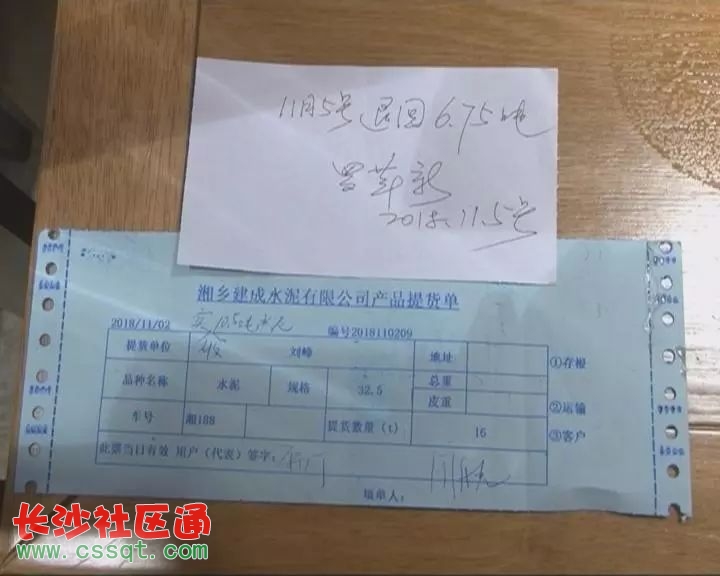 11月5号退回6.75吨
2018.11.5号
湘乡建成水泥有限公司产品提货单
2018/11/02 编号2018110209
提货单位 刘峰 地址 ①存根
品种名称 水泥 规格 32.5 总重
皮重 ②运输
车号 湘188 提货数量（t） 16 ③客户
此票当日有效 用户（代表）签字：
填单人：
长沙社区通
www.cssqt.com